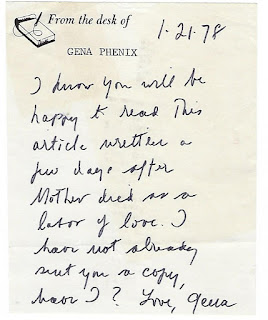 From the desk of
GENA PHENIX
1-21-78
I know you will be
happy to read This
article written a
few days after
Mother died as a
labor of love. I
have not already
sent you a copy,
have I? Love, Gena